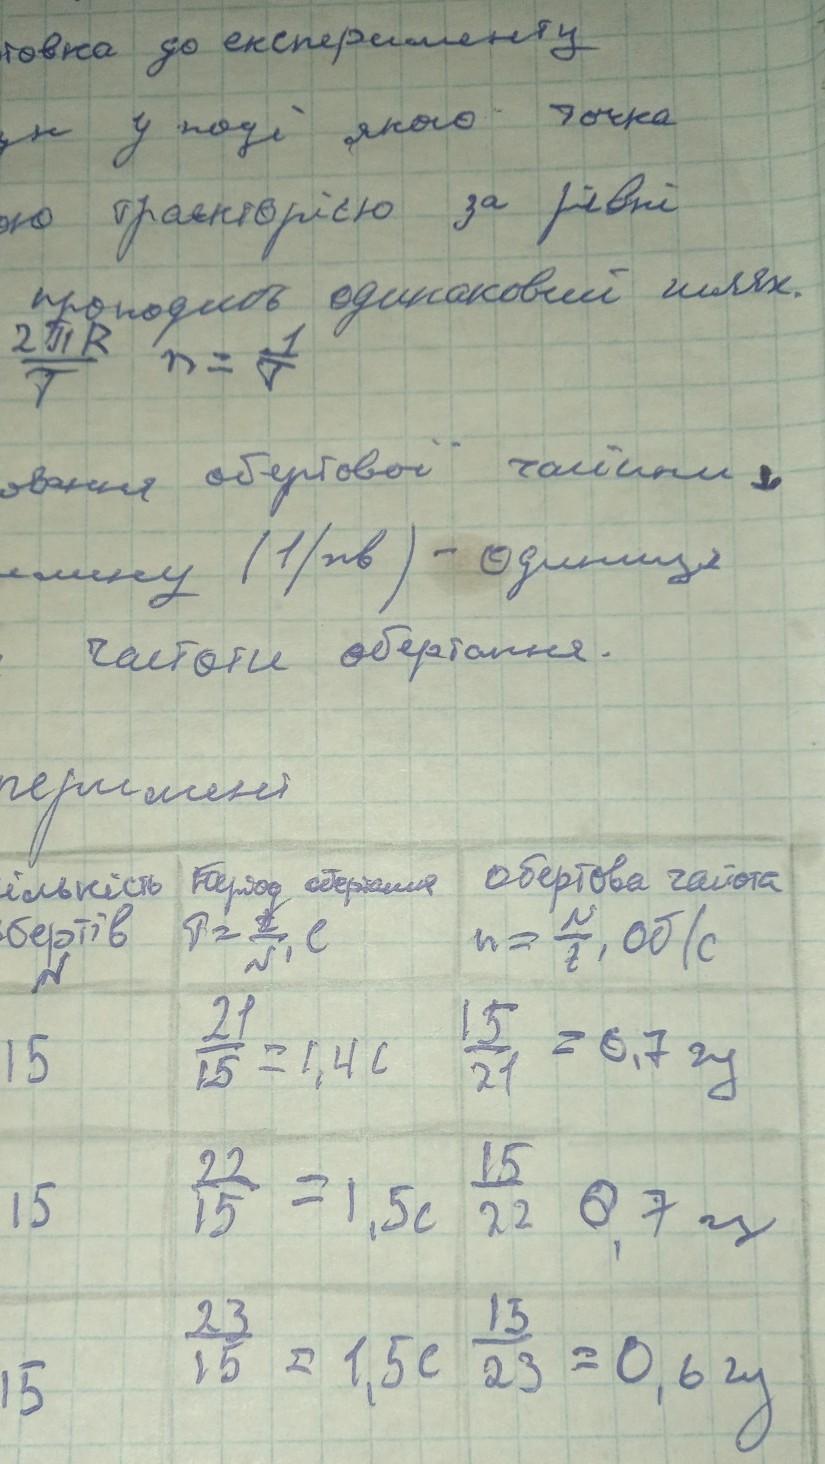 товка до експерименту
ух у ході якого точка
ою траєкторією за рівні
проходить одинаковий шлях.
2πR/T n = 1/T
ування обертової частоти
хвилину (1/хв) - одиниця
частоти обертання.
перимент
ількість Період обертання обертова частота
обертів N T = t/N, с n = N/t, Об/с
15 21/15 = 1,4 с 15/21 = 0,7 гц
15 22/15 = 1,5с 15/22 0,7 гц
15 23/15 = 1,5с 15/23 = 0,6 гц